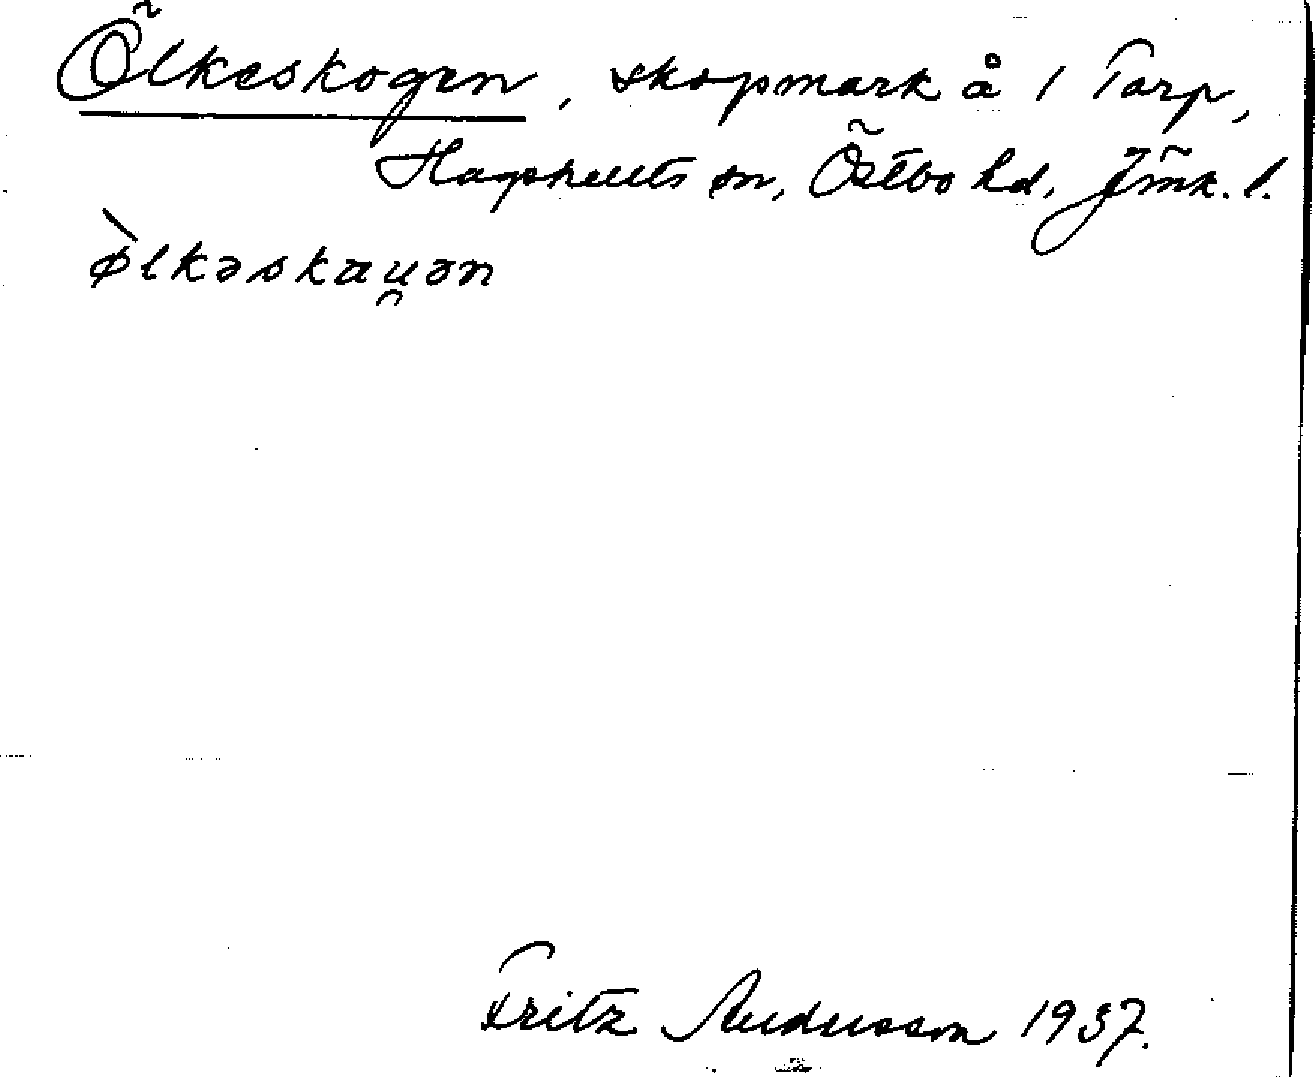 Ölkeskogen, skogsmark å 1 Torp,
Hagshults sn, Östbo hd, Jönk. l.
ø̀lkəskau̯ən
Fritz Andersson 1937.